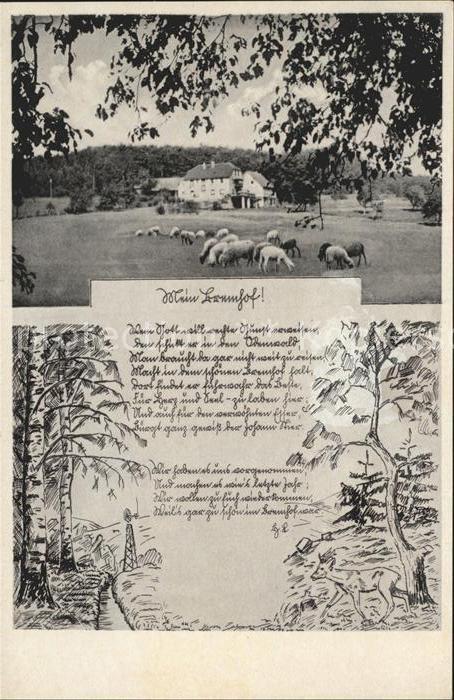 Mein Bremhof!
Wem Gott will rechte Gunst erweisen,
den schickt er in den Odenwald
Man braucht da gar nicht weit zu reisen
Macht in dem schönen Bremhof halt,
Dort findet er fürwahr das Beste,
Für Herz und Seel - zu laben hier;
Und auch für den verwöhnten Esser
Bürgt ganz gewiß der Johann Hier.
Wir haben es uns vorgenommen,
Und machen es wie's letzte Jahr;
Wir wollen zu Euch wiederkommen,
Weil's gar zu schön im Bremhof war